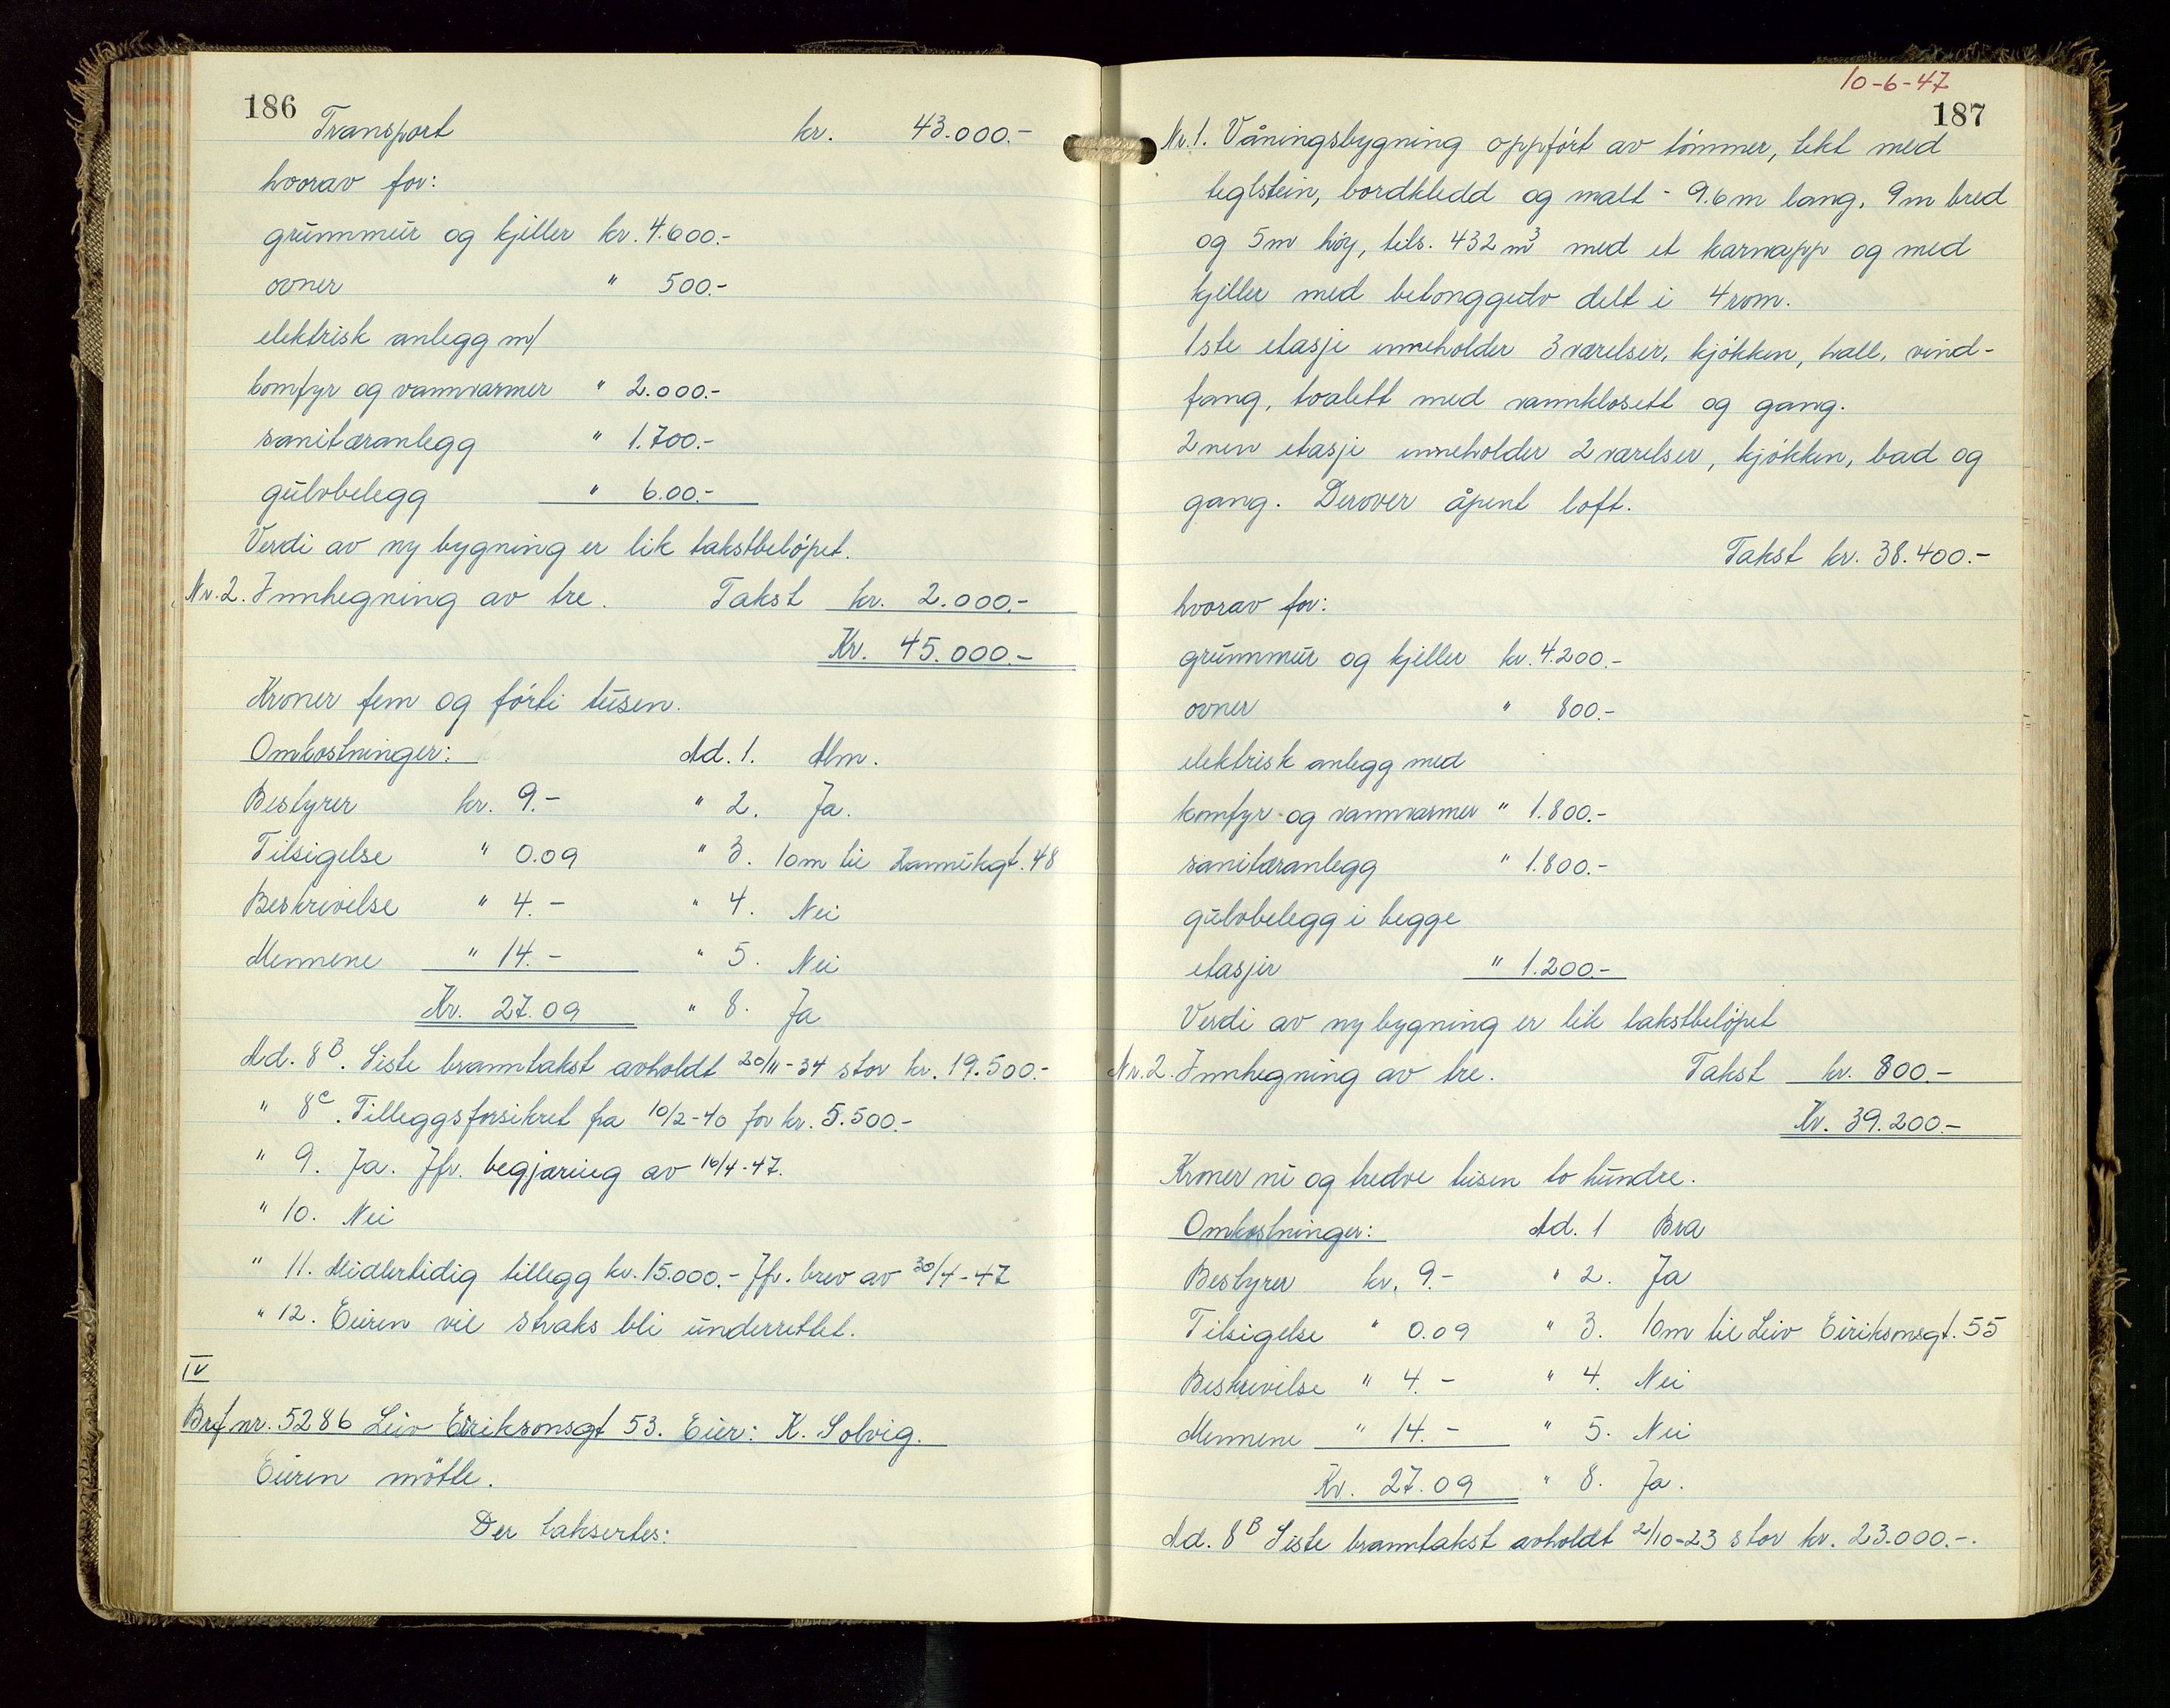 186
Transport kr. 43.000.-
hvorav for:
grunnmur og kjeller kr. 4.600.-
ovner " 500.-
elektrisk anlegg m/
komfyr og vannvarmer " 2.000.-
sanitæranlegg " 1.700.-
gulvbelegg " 6.00.-
Verdi av ny bygning er lik takstbeløpet.
Nr. 2. Innhegning av tre. Takst kr. 2.000.-
Kr. 45.000.-
Kroner fem og førti tusen.
Omkostninger: Ad. 1. Alm.
Bestyrer kr. 9.- " 2. Ja.
Tilsigelse " 0.09 " 3. 10m til 48
Beskrivelse " 4.- " 4. Nei
Mennene " 14.- " 5. Nei
Kr. 27.09 " 8. Ja
Ad. 8B. Siste branntakst avholdt 20/11-34 stor kr. 19.500.-
" 8c. Tilleggsforsikret fra 10/2-40 for kr. 5.500.-
" 9. Ja. Jfr. begjæring av 16/4-47.
" 10. Nei
" 11. Midlertidig tillegg kr. 15.000.- Jfr. brev av 30/4-47
" 12. Eieren vil straks bli underrettet.
IV
Brf nr. 5286 Leiv Eiriksonsgt 53. Eier: K. Solvig.
Eieren møtte.
Der taksertes:
10-6-47
187
Nr. 1. Våningsbygning oppført av tømmer, tekt med
teglstein, bordkledd og malt - 9.6m lang, 9m bred
og 5m høy, tils. 432 m3 med et karnapp og med
kjeller med betonggulv delt i 4 rom.
1ste etasje inneholder 3 værelser, kjøkken, hall, vind-
fang, toalett med vannklosett og gang.
2nen etasje inneholder 2 værelser, kjøkken, bad og
gang. Derover åpent loft.
Takst kr. 38.400.-
hvorav for:
grunnmur og kjeller kr. 4.200.-
ovner " 800.-
elektrisk anlegg med
komfyr og vannvarmer " 1.800.-
sanitæranlegg " 1.800.-
gulvbelegg i begge
etasjer " 1.200.-
Verdi av ny bygning er lik takstbeløpet
Nr. 2. Innhegning av tre. Takst kr. 800.-
Kr. 39.200.-
Kroner ni og tredve tusen to hundre.
Omkostninger: Ad. 1 Bra
Bestyrer kr. 9.- " 2. Ja
Tilsigelse " 0.09 " 3. 10m til Leiv Eiriksonsgt. 55
Beskrivelse " 4.- " 4. Nei
Mennene " 14.- " 5. Nei
Kr. 27.09 " 8. Ja.
Ad. 8B Siste branntakst avholdt /10-23 stor kr. 23.000.-.